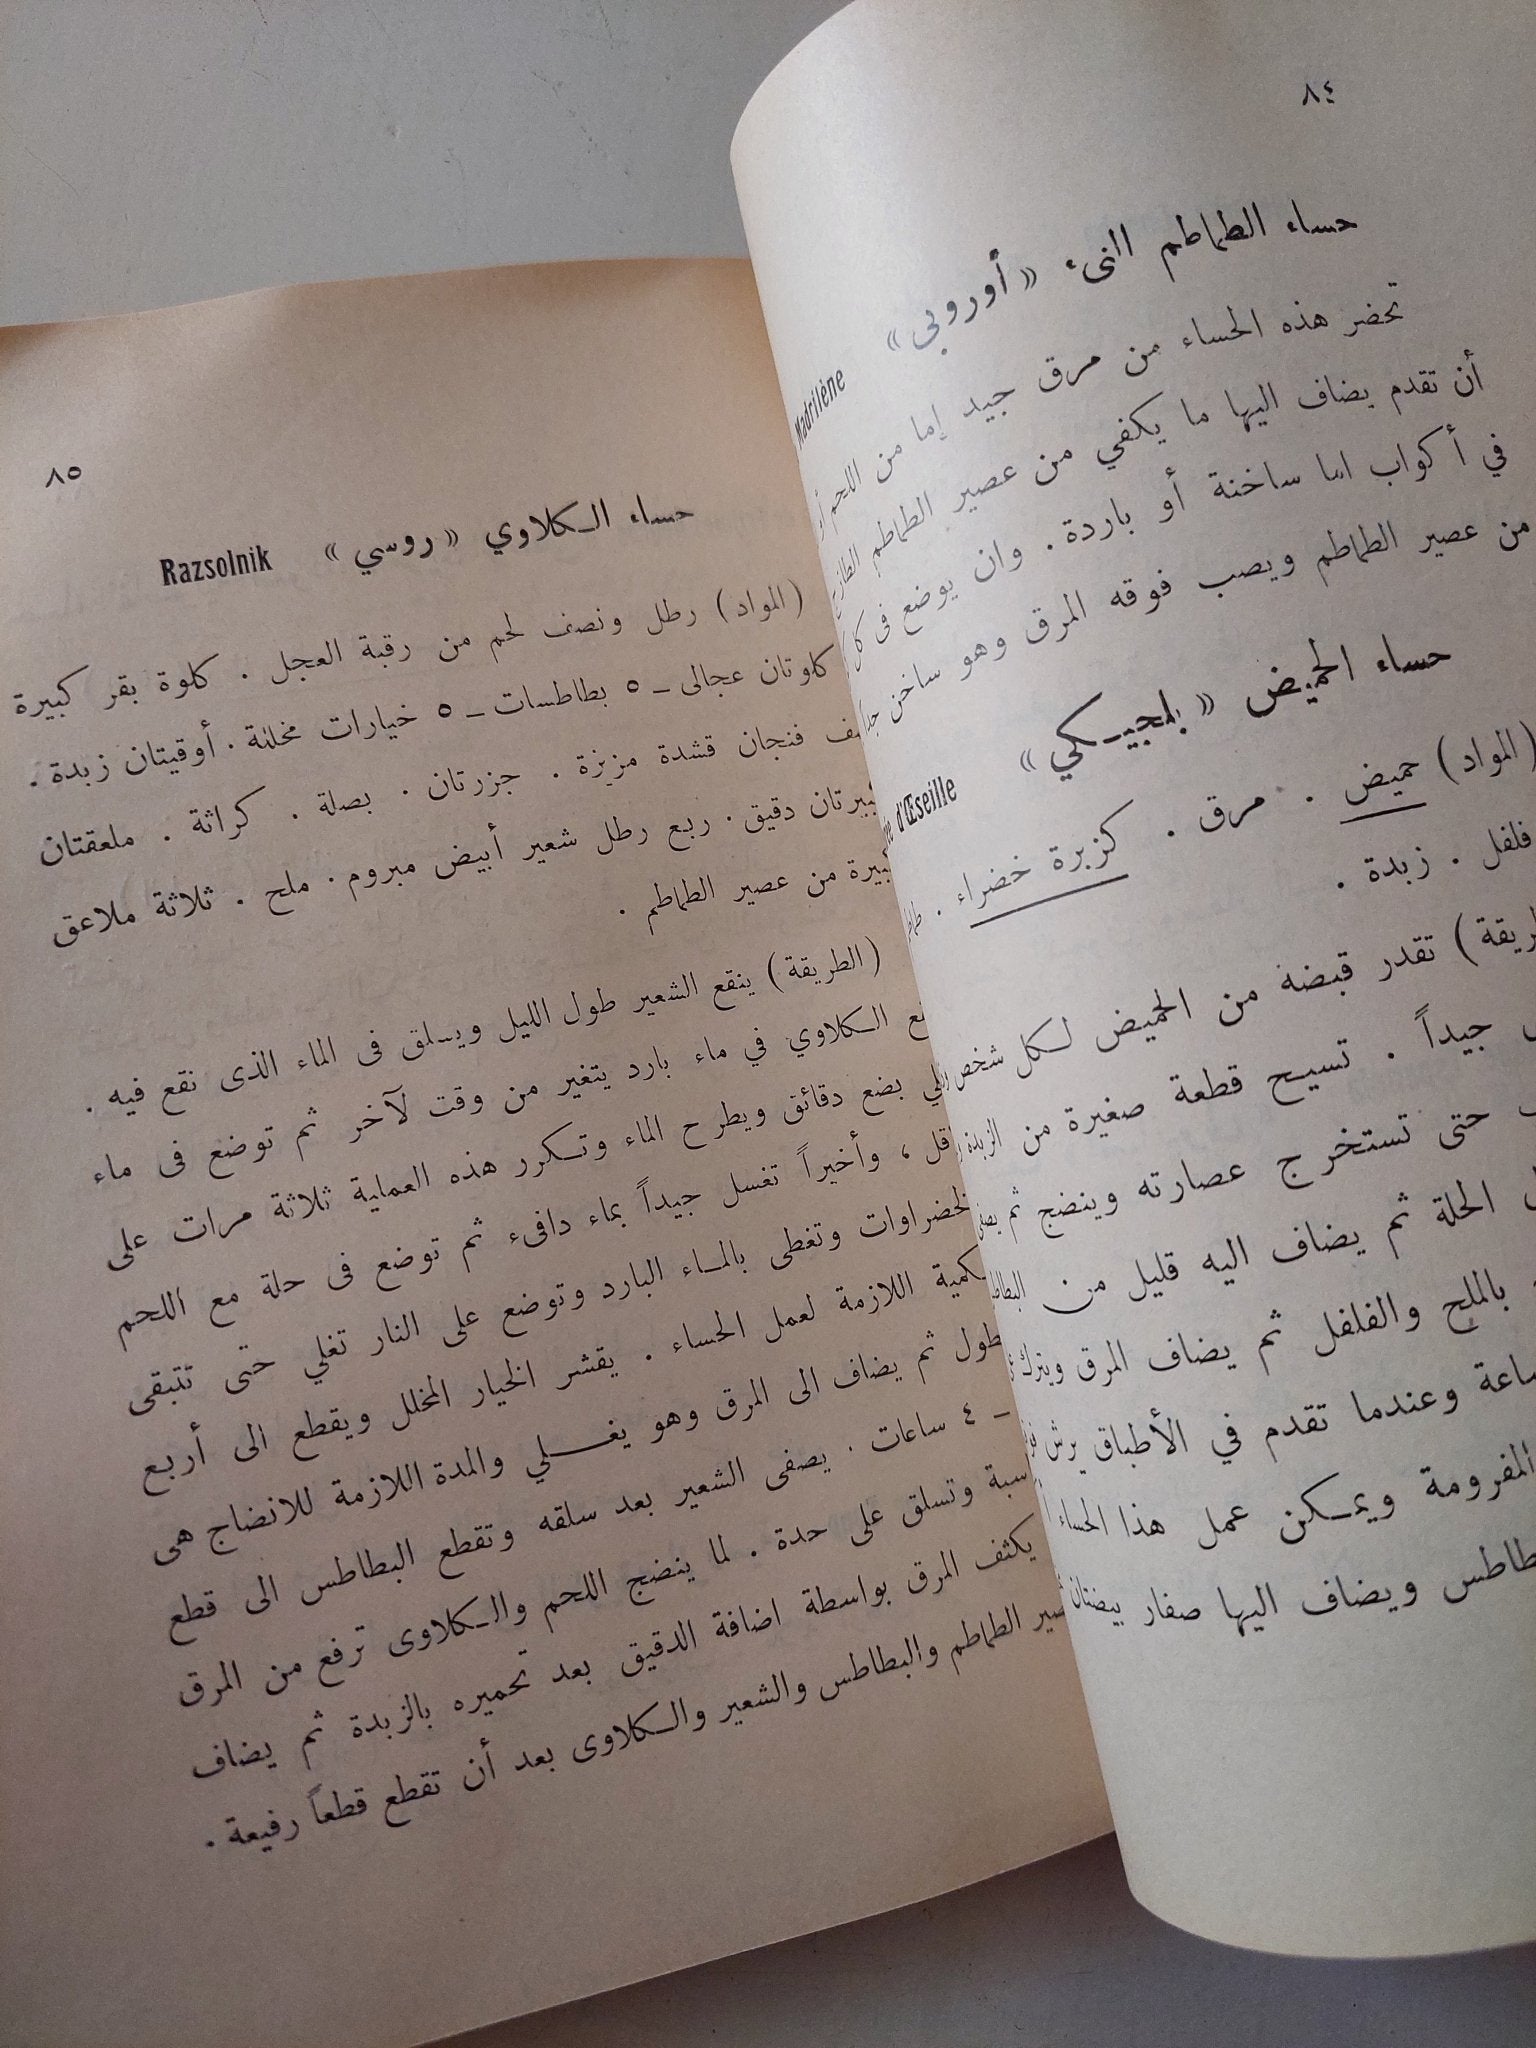 ٨٤
حساء الطماطم النىء «أوروبي» Madrilène
تحضر هذه الحساء من مرق جيد إما من اللحم
أن تقدم يضاف اليها ما يكفي من عصير الطماطم
في أكواب اما ساخنة أو باردة . وان يوضع فى
من عصير الطماطم ويصب فوقه المرق وهو ساخن
حساء الحميض «بلجيكي» d'Œseille
(المواد) حميض . مرق . كزبرة خضراء .
فلفل . زبدة .
تقدر قبضة من الحميض لكل شخص
جيداً . تسيح قطعة صغيرة من الزبدة
حتى تستخرج عصارته وينضج ثم
الحلة ثم يضاف اليه قليل من
بالملح والفلفل ثم يضاف المرق ويترك
وعندما تقدم في الأطباق يرش
المفرومة ويمكن عمل هذا الحساء
ويضاف اليها صفار بيضتان
٨٥
حساء الكلاوي «روسي» Razsolnik
(المواد) رطل ونصف لحم من رقبة العجل . كلوة بقر كبيرة
كلوتان عجالى – ٥ بطاطسات – ٥ خيارات مخللة . أوقيتان زبدة .
فنجان قشدة مزيزة . جزرتان . بصلة . كراثة . ملعقتان
دقيق . ربع رطل شعير أبيض مبروم . ملح . ثلاثة ملاعق
من عصير الطماطم .
(الطريقة) ينقع الشعير طول الليل ويسلق فى الماء الذى نقع فيه .
الكلاوي في ماء بارد يتغير من وقت لآخر ثم توضع فى ماء
بضع دقائق ويطرح الماء وتكرر هذه العملية ثلاثة مرات على
، وأخيراً تغسل جيداً بماء دافىء ثم توضع فى حلة مع اللحم
وتغطى بالماء البارد وتوضع على النار تغلي حتى تتبقى
اللازمة لعمل الحساء . يقشر الخيار المخلل ويقطع الى أربع
ثم يضاف الى المرق وهو يغلي والمدة اللازمة للانضاج هى
– ٤ ساعات . يصفى الشعير بعد سلقه وتقطع البطاطس الى قطع
وتسلق على حدة . لما ينضج اللحم والكلاوى ترفع من المرق
يكثف المرق بواسطة اضافة الدقيق بعد تحميره بالزبدة ثم يضاف
الطماطم والبطاطس والشعير والكلاوى بعد أن تقطع قطعاً رفيعة .